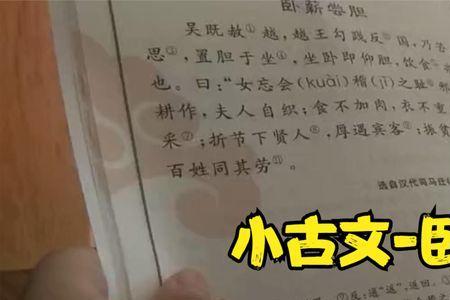 卧薪尝胆
吴既赦越,越王勾践反国,乃苦
思③,置胆于坐④,坐卧即仰胆,饮食
也。曰:“女忘会(kuài)稽(jī)之耻
耕作,夫人自织;食不加肉,衣不重
采⑦;折节下贤人⑧,厚遇宾客;振贫
百姓同其劳⑪。
选自汉代司马迁
小古文-卧